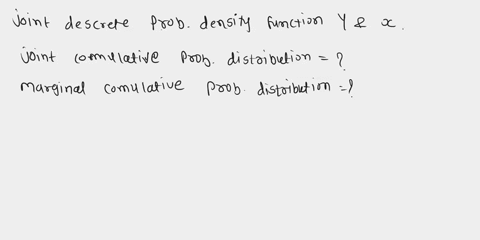 Joint descrete Prob. density function Y & x.
Joint comulative Prob. distribution = ?
Marginal comulative Prob. distribution = ?